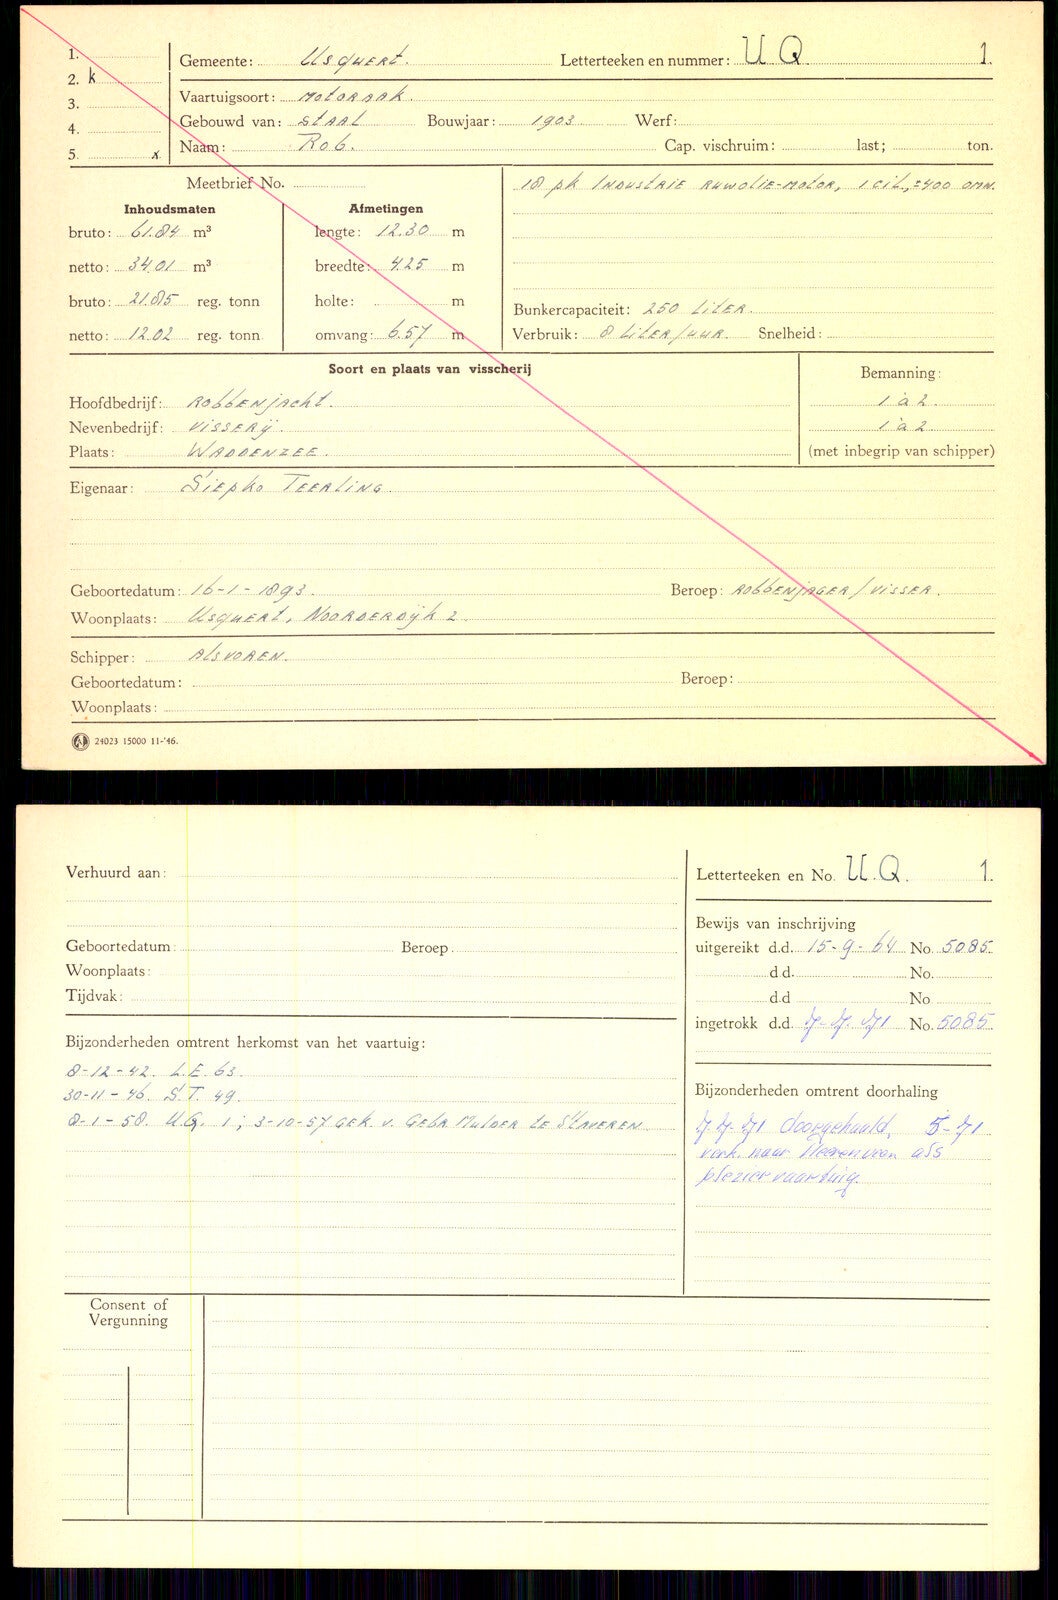 1.
2. k
3.
4.
5. x
Gemeente: Usquert. Letterteeken en nummer: U Q. 1.
Vaartuigsoort: Motoraak.
Gebouwd van: Staal Bouwjaar: 1903 Werf:
Naam: Rob. Cap. vischruim: last; ton.
Meetbrief No.
Inhoudsmaten
bruto: 61.84 m³
netto: 34.01 m³
bruto: 21.85 reg. tonn
netto: 12.02 reg. tonn
Afmetingen
lengte: 12.30 m
breedte: 4.25 m
holte: m
omvang: 6.57 m
18 pk Industrie ruwolie-motor, 1 cil., 2400 omn.
Bunkercapaciteit: 250 liter.
Verbruik: 8 liter/uur. Snelheid:
Soort en plaats van visscherij
Hoofdbedrijf: Robbenjacht.
Nevenbedrijf: Visserij.
Plaats: Waddenzee.
Bemanning:
1 à 2.
1 à 2
(met inbegrip van schipper)
Eigenaar: Siepko Teerling.
Geboortedatum: 16-1-1893. Beroep: Robbenjager/visser.
Woonplaats: Usquert, Noorderdijk 2.
Schipper: Alsvoren.
Geboortedatum: Beroep:
Woonplaats:
24023 15000 11-'46.
Verhuurd aan:
Geboortedatum: Beroep.
Woonplaats:
Tijdvak:
Bijzonderheden omtrent herkomst van het vaartuig:
8-12-42. L.E. 63.
30-11-46. S.T. 49.
8-1-58. U.Q. 1; 3-10-57 gek. v. Gebr. Mulder te Staveren.
Letterteeken en No. U.Q. 1.
Bewijs van inschrijving
uitgereikt d.d. 15-9-64 No. 5085.
d d. No.
d.d No
ingetrokk d.d. 7-7-71 No. 5085.
Bijzonderheden omtrent doorhaling
7-7-71 doorgehaald, 5-71
verk. naar Heerenveen als
pleziervaartuig.
Consent of
Vergunning